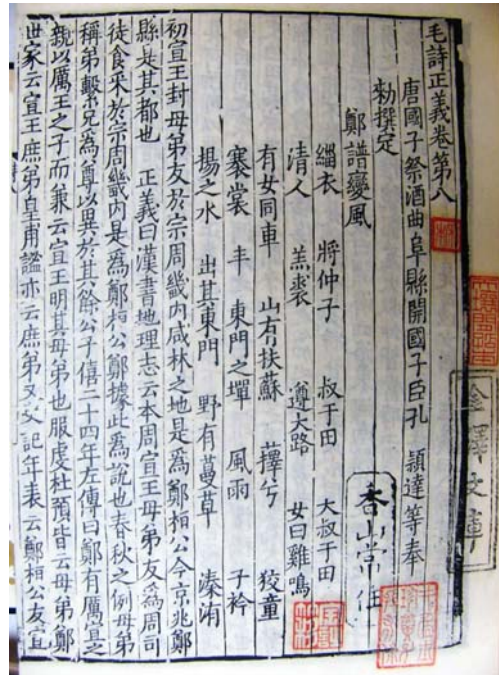 毛詩正義卷第八
唐國子祭酒曲阜縣開國子臣孔 穎達等奉
勑撰定
鄭譜變風
緇衣 將仲子 叔于田 大叔于田
清人 羔裘 遵大路 女曰雞鳴
有女同車 山有扶蘇 蘀兮 狡童
褰裳 丰 東門之墠 風雨 子衿
揚之水 出其東門 野有蔓草 溱洧
初宣王封母弟友於宗周畿內咸林之地是爲鄭桓公今京兆鄭
縣是其都也 正義曰漢書地理志云本周宣王母弟友爲周司
徒食采於宗周畿內是爲鄭桓公鄭據此爲說也春秋之例母弟
稱弟繫兄爲尊以異於其餘公子僖二十四年左傳曰鄭有厲宣之
親以厲王之子而兼云宣王明其母弟也服虔杜預皆云母弟鄭
世家云宣王庶弟皇甫謐亦云庶弟又史記年表云鄭桓公友宣
香山常住
金澤文庫